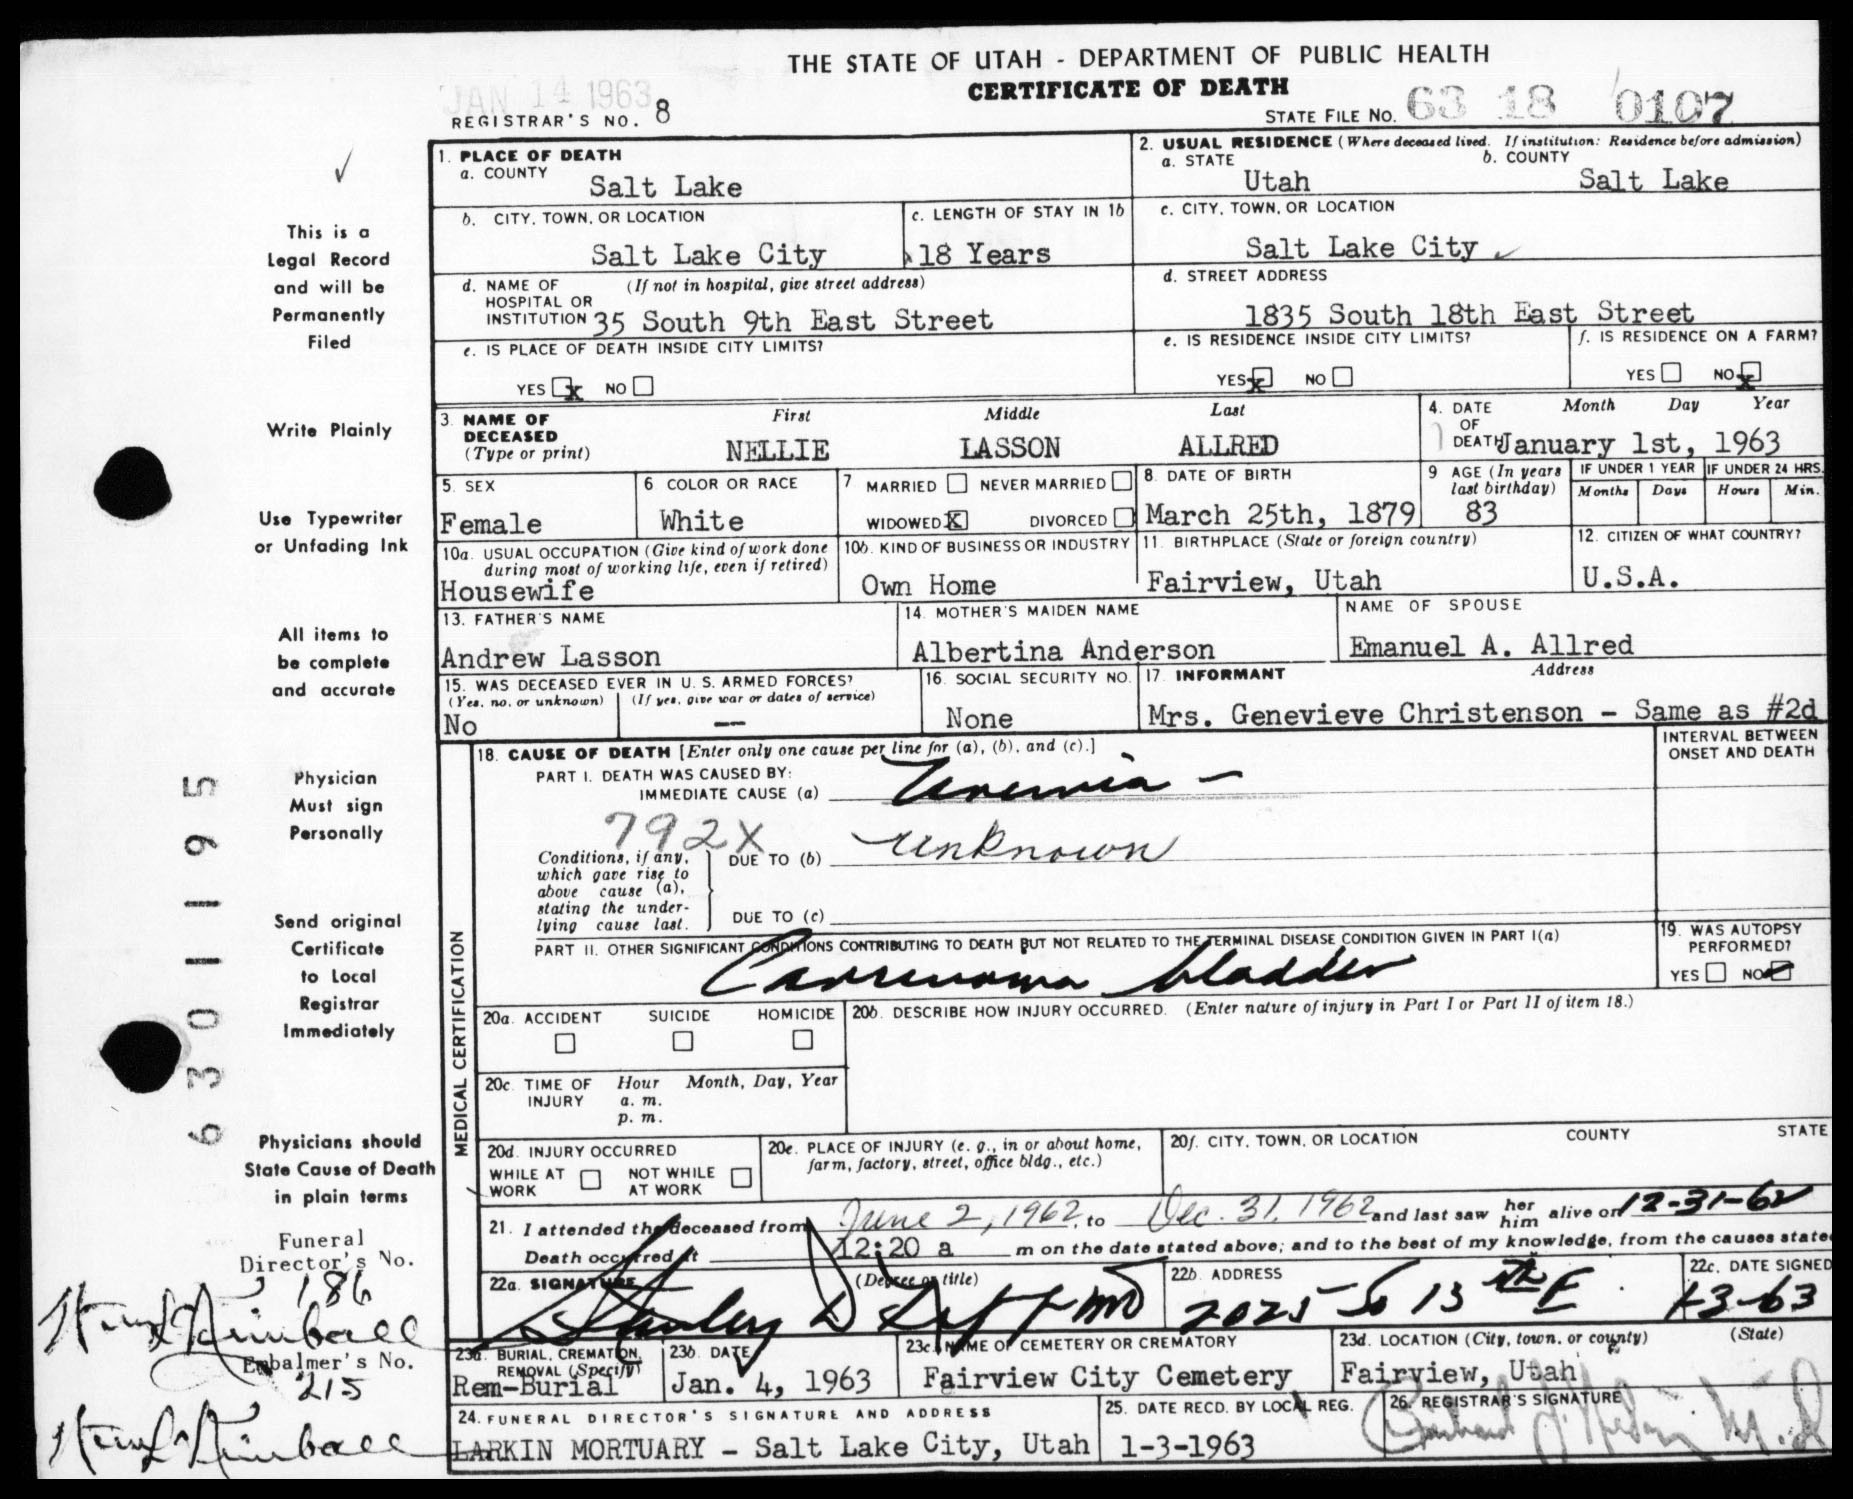 THE STATE OF UTAH - DEPARTMENT OF PUBLIC HEALTH
CERTIFICATE OF DEATH
JAN 14 1963
REGISTRAR'S NO. 8
STATE FILE NO. 63 18 0107
This is a
Legal Record
and will be
Permanently
Filed
Write Plainly
Use Typewriter
or Unfading Ink
All items to
be complete
and accurate
Physician
Must sign
Personally
Send original
Certificate
to Local
Registrar
Immediately
Physicians should
State Cause of Death
in plain terms
Funeral
Director's No.
186
Embalmer's No.
215
6301195
1. PLACE OF DEATH
a. COUNTY
Salt Lake
2. USUAL RESIDENCE (Where deceased lived. If institution: Residence before admission)
a. STATE b. COUNTY
Utah Salt Lake
b. CITY, TOWN, OR LOCATION
Salt Lake City
c. LENGTH OF STAY IN 1b
18 Years
c. CITY, TOWN, OR LOCATION
Salt Lake City
d. NAME OF (If not in hospital, give street address)
HOSPITAL OR
INSTITUTION 35 South 9th East Street
d. STREET ADDRESS
1835 South 18th East Street
e. IS PLACE OF DEATH INSIDE CITY LIMITS?
YES x NO
e. IS RESIDENCE INSIDE CITY LIMITS?
YES x NO
f. IS RESIDENCE ON A FARM?
YES NO x
3. NAME OF First Middle Last
DECEASED
(Type or print) NELLIE LASSON ALLRED
4. DATE Month Day Year
OF
DEATH January 1st, 1963
5. SEX
Female
6 COLOR OR RACE
White
7 MARRIED NEVER MARRIED
WIDOWED X DIVORCED
8. DATE OF BIRTH
March 25th, 1879
9 AGE (In years
last birthday)
83
IF UNDER 1 YEAR
Months Days
IF UNDER 24 HRS.
Hours Min.
10a. USUAL OCCUPATION (Give kind of work done
during most of working life, even if retired)
Housewife
10b. KIND OF BUSINESS OR INDUSTRY
Own Home
11. BIRTHPLACE (State or foreign country)
Fairview, Utah
12. CITIZEN OF WHAT COUNTRY?
U.S.A.
13. FATHER'S NAME
Andrew Lasson
14. MOTHER'S MAIDEN NAME
Albertina Anderson
NAME OF SPOUSE
Emanuel A. Allred
15. WAS DECEASED EVER IN U. S. ARMED FORCES?
(Yes, no, or unknown) (If yes, give war or dates of service)
No --
16. SOCIAL SECURITY NO.
None
17. INFORMANT Address
Mrs. Genevieve Christenson - Same as #2d
MEDICAL CERTIFICATION
18. CAUSE OF DEATH [Enter only one cause per line for (a), (b), and (c).]
INTERVAL BETWEEN
ONSET AND DEATH
PART I. DEATH WAS CAUSED BY:
IMMEDIATE CAUSE (a) Uremia -
792X
Conditions, if any,
which gave rise to
above cause (a),
stating the under-
lying cause last.
DUE TO (b) Unknown
DUE TO (c)
PART II. OTHER SIGNIFICANT CONDITIONS CONTRIBUTING TO DEATH BUT NOT RELATED TO THE TERMINAL DISEASE CONDITION GIVEN IN PART I(a)
Carcinoma bladder
19. WAS AUTOPSY
PERFORMED?
YES NO
20a. ACCIDENT SUICIDE HOMICIDE
20b. DESCRIBE HOW INJURY OCCURRED. (Enter nature of injury in Part I or Part II of item 18.)
20c. TIME OF Hour Month, Day, Year
INJURY a. m.
p. m.
20d. INJURY OCCURRED
WHILE AT NOT WHILE
WORK AT WORK
20e. PLACE OF INJURY (e. g., in or about home,
farm, factory, street, office bldg., etc.)
20f. CITY, TOWN, OR LOCATION COUNTY STATE
21. I attended the deceased from June 2, 1962, to Dec. 31, 1962 and last saw her him alive on 12-31-62
Death occurred at 12:20 a m on the date stated above; and to the best of my knowledge, from the causes state
22a. SIGNATURE (Degree or title)
Stanley D MD
22b. ADDRESS
2025 So 13th E
22c. DATE SIGNED
1-3-63
23a. BURIAL, CREMATION,
REMOVAL (Specify)
Rem-Burial
23b. DATE
Jan. 4, 1963
23c. NAME OF CEMETERY OR CREMATORY
Fairview City Cemetery
23d. LOCATION (City, town, or county) (State)
Fairview, Utah
24. FUNERAL DIRECTOR'S SIGNATURE AND ADDRESS
LARKIN MORTUARY - Salt Lake City, Utah
25. DATE RECD. BY LOCAL REG.
1-3-1963
26. REGISTRAR'S SIGNATURE
M.D